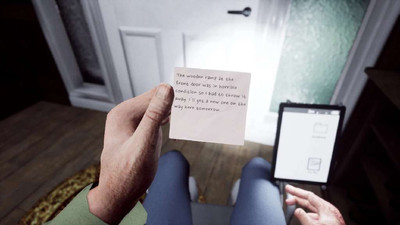 The wooden ramp at the
front door was in terrible
condition so I had to throw it
away. I'll get a new one on the
way here tomorrow.